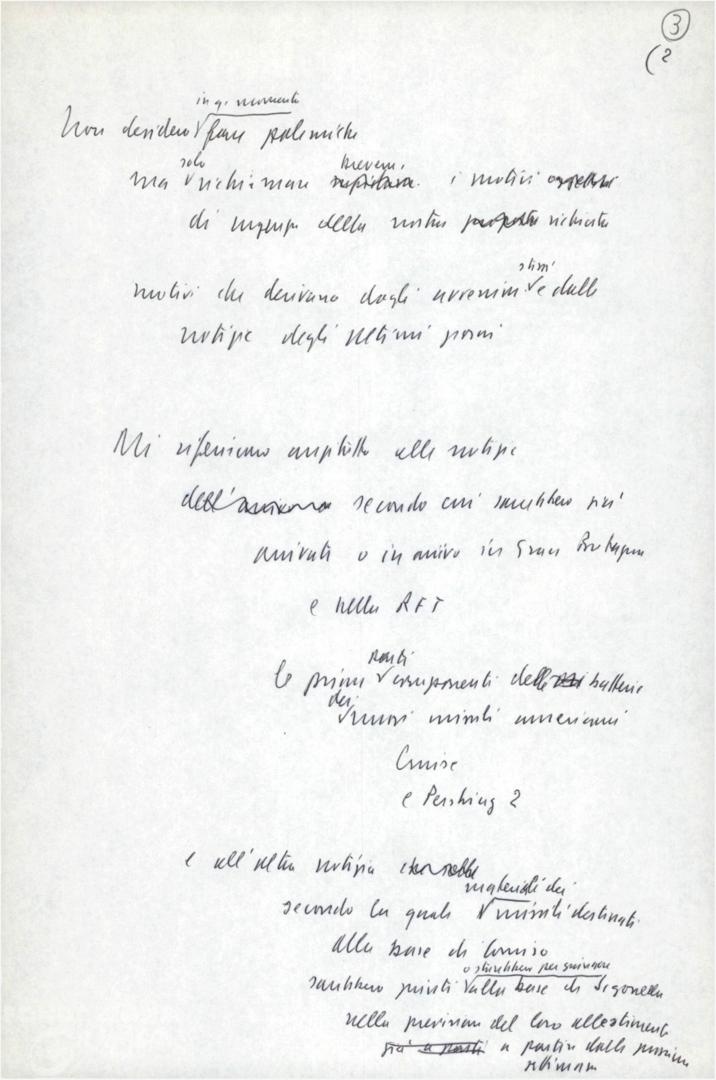 3
(2
in q. momento
Non desidero fare polemiche
solo brevem.
ma richiamare i motivi
di urgenza della nostra richiesta
stessi
motivi che derivano dagli avvenim. e dalle
notizie degli ultimi giorni
Mi riferisco anzitutto alle notizie
dell' secondo cui sarebbero già
arrivati o in arrivo in Gran Bretagna
e nella RFT
le prime componenti delle batterie
dei
nuovi missili americani
Cruise
e Pershing 2
e all'altra notizia
materiali dei
secondo la quale missili destinati
alla base di Comiso
o starebbero per giungere
sarebbero giunti alla base di Sigonella
nella previsione del loro allestimento
già a partire a partire dalla prossima
settimana